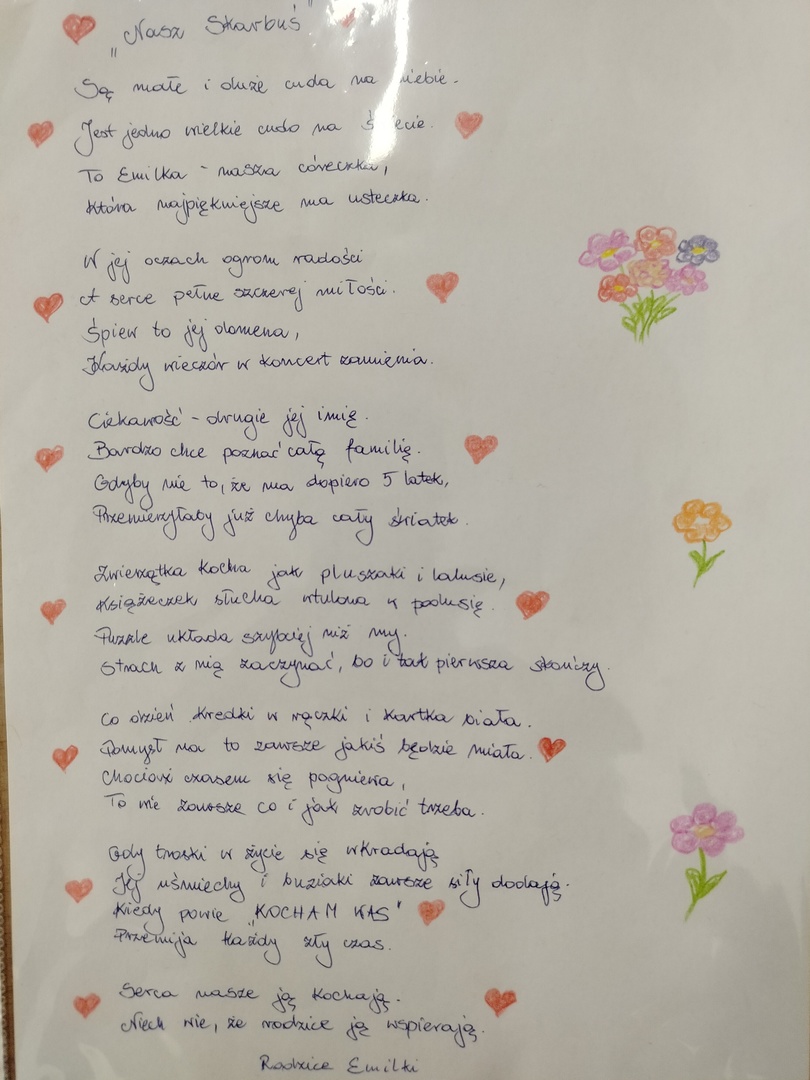 „Nasz Skarbuś"
Są małe i duże cuda na niebie.
Jest jedno wielkie cudo na świecie.
To Emilka - nasza córeczka,
Która najpiękniejsze ma usteczka.
W jej oczach ogrom radości
A serce pełne szczerej miłości.
Śpiew to jej domena,
Każdy wieczór w koncert zamienia.
Ciekawość - drugie jej imię.
Bardzo chce poznać całą familię.
Gdyby nie to, że ma dopiero 5 latek,
Przemierzyłaby już chyba cały światek.
Zwierzątka kocha jak pluszaki i lalusie,
Książeczek słucha wtulona w podusię.
Puzzle układa szybciej niż my.
Strach z nią zaczynać, bo i tak pierwsza skończy.
Co dzień kredki w rączki i kartka biała.
Pomysł na to zawsze jakiś będzie miała.
Chociaż czasem się pogniewa,
To wie zawsze co i jak zrobić trzeba.
Gdy troski w życie się wkradają
Jej uśmiechy i buziaki zawsze siły dodają.
Kiedy powie „KOCHAM WAS"
Przemija każdy zły czas.
Serca nasze ją kochają.
Niech wie, że rodzice ją wspierają.
Rodzice Emilki